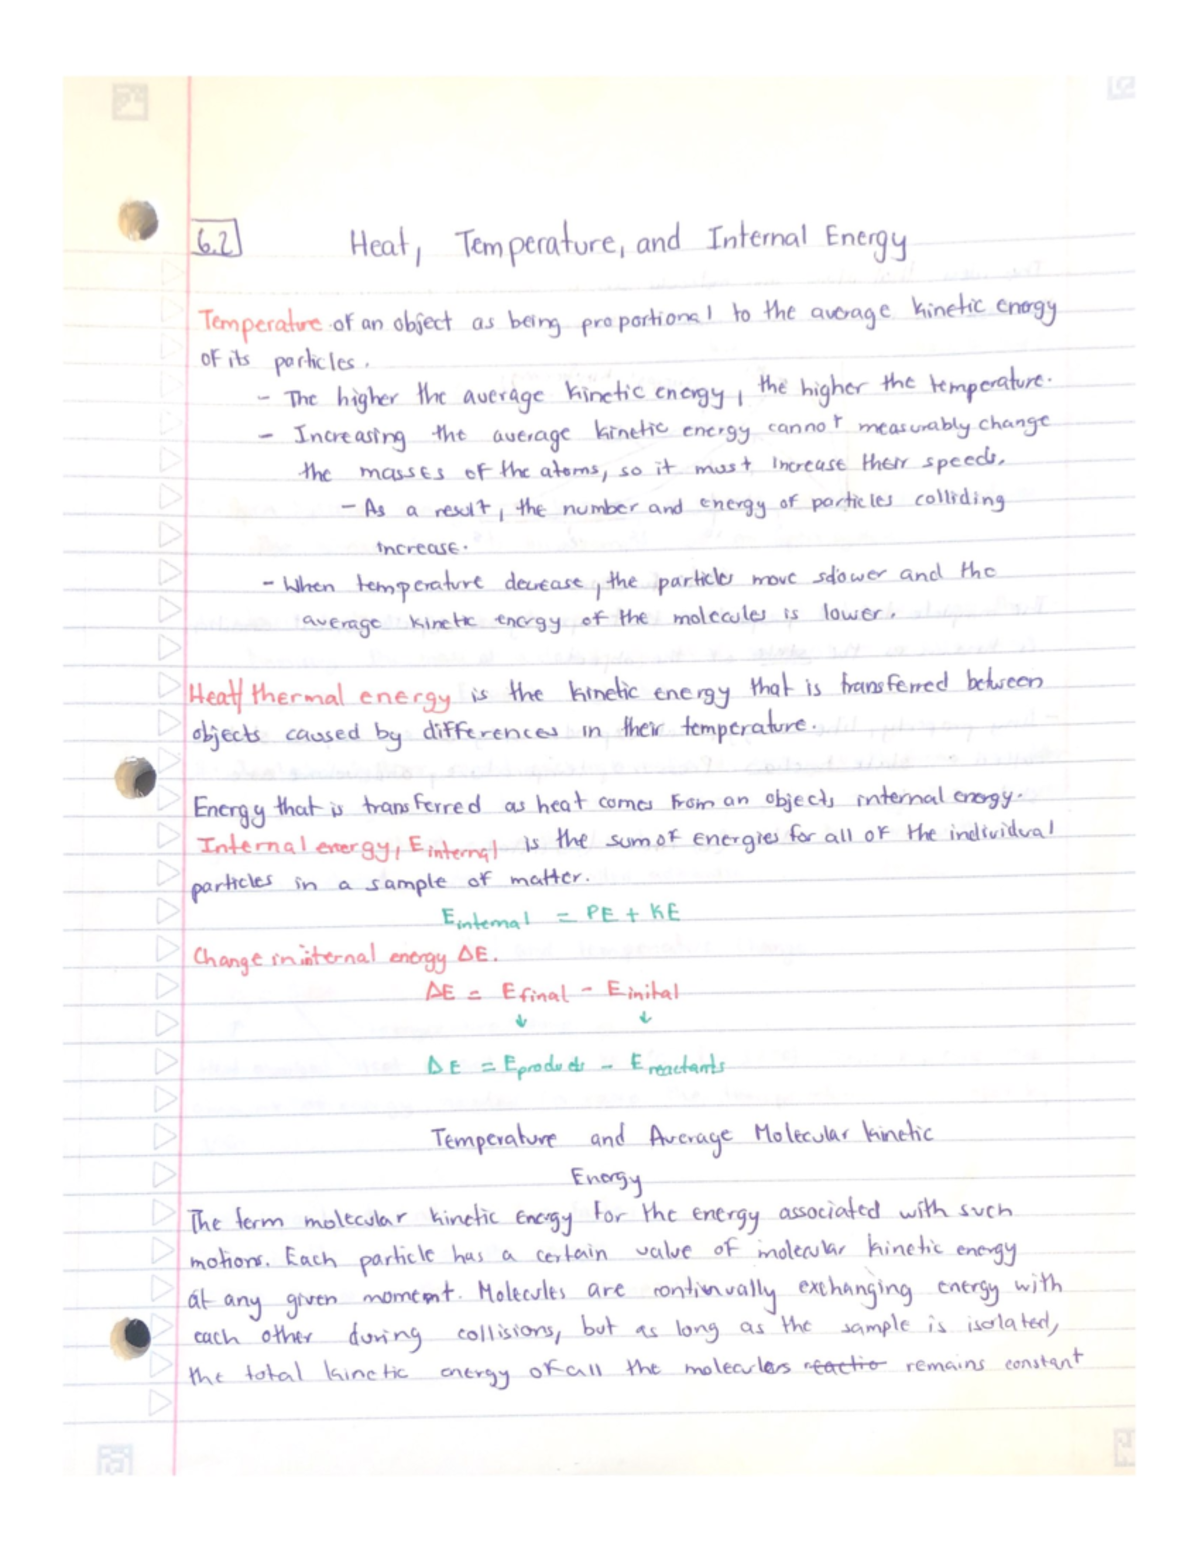 6.2 Heat, Temperature, and Internal Energy
Temperature of an object as being proportional to the average kinetic energy
of its particles.
- The higher the average kinetic energy, the higher the temperature.
- Increasing the average kinetic energy cannot measurably change
the masses of the atoms, so it must increase their speeds.
- As a result, the number and energy of particles colliding
increase.
- When temperature decrease, the particles move slower and the
average kinetic energy of the molecules is lower.
Heat/thermal energy is the kinetic energy that is transferred between
objects caused by differences in their temperature.
Energy that is transferred as heat comes from an objects internal energy.
Internal energy, Einternal is the sum of energies for all of the individual
particles in a sample of matter.
Einternal = PE + KE
Change in internal energy ΔE.
ΔE = Efinal - Einital
↓ ↓
ΔE = Eproducts - Ereactants
Temperature and Average Molecular kinetic
Energy
The term molecular kinetic energy for the energy associated with such
motions. Each particle has a certain value of molecular kinetic energy
at any given moment. Molecules are continually exchanging energy with
each other during collisions, but as long as the sample is isolated,
the total kinetic energy of all the moleculers reactio remains constant